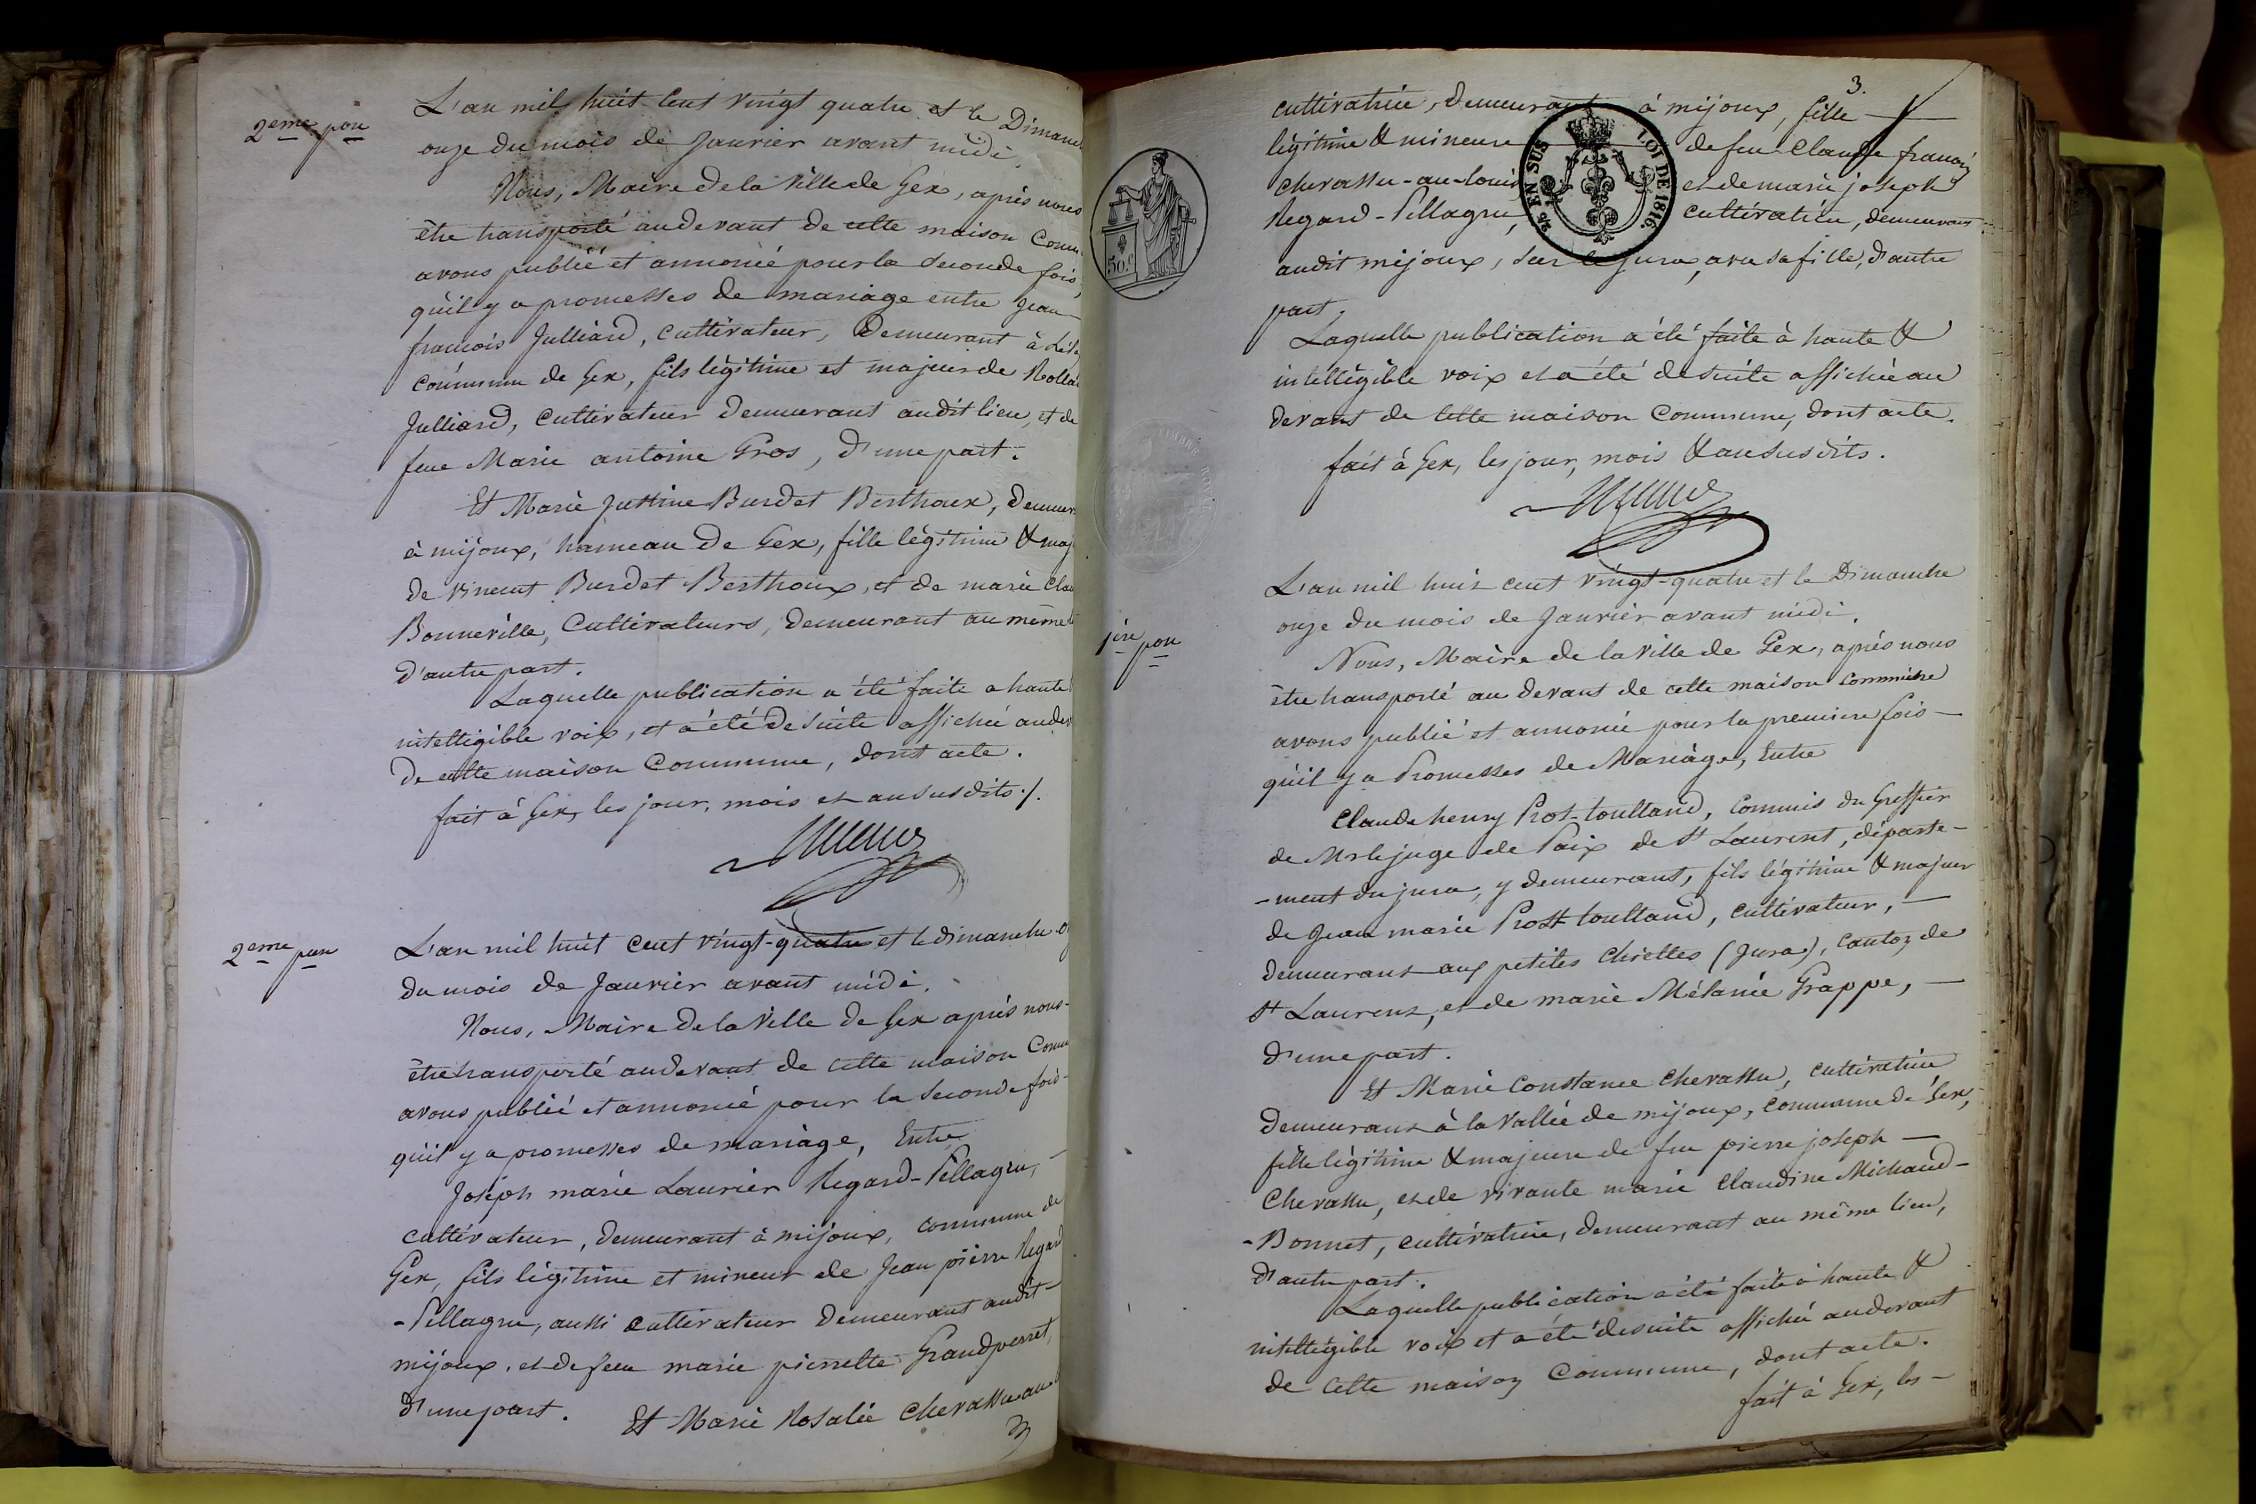 2eme pon
L'an mil huit Cent vingt quatre et le Dimanch
onze du mois de Janvier avant midi.
Nous, Maire de la Ville de Gex, après nous
être transporté au devant de cette maison Comm
avons publié et annoncé pour la seconde fois,
qu'il y a promesses de mariage entre Jean
françois Julliard, Cultivateur, Demeurant à
commune de Gex, fils légitime et majeur de Rolla
Julliard, Cultivateur Demeurant audit lieu, et de
feue Marie antoine Gros, D'une part.
Et Marie Justine Burdet Berthoux, Demeur
à mijoux, hameau de Gex, fille légitime & maj
de vincent Burdet Berthoux, et de marie Clau
Bonneville, Cultivateurs, Demeurant au même
D'autre part.
Laquelle publication a été faite a haute
intelligible voix, et a été de suite affichée au dev
De cette maison Commune, dont acte.
fait à Gex, les jour, mois et an susdits ./.
2eme pon
L'an mil huit cent vingt-quatre et le dimanche on
du mois de Janvier avant midi.
Nous, Maire De la Ville de Gex après nous-
être transporté au devant de cette maison Comm
avons publié et annoncé pour la Seconde fois-
qu'il y a promesses de mariage, Entre
Joseph marie Laurier Regard-Pellagru,-
cultivateur, demeurant à mijoux, commune de
Gex, fils légitime et mineur de Jean pierre Regard
-Pellagru, aussi cultivateur Demeurant audit-
mijoux, et de feue marie pierrette Grandperret,
D'une part. Et Marie Rosalie Chevassu-au
3.
cultivatrice, demeurant à mijoux, fille
légitime & mineure de feu Claude françois
chevassu-au-Louis et de marie joseph
Regard-Pellagru, cultivatrice, demeurant
audit mijoux, sur le Jura, avec sa fille, d'autre
part.
Laquelle publication a été faite à haute &
intelligible voix et a été de suite affichée au
devant de Cette maison Commune, dont acte.
fait à Gex, les jour, mois & an susdits.
25 EN SUS LOI DE 1816
50 c
TIMBRE ROYAL
1ère pon
L'an mil huit cent vingt-quatre et le Dimanche
onze du mois de Janvier avant midi.
Nous, Maire de la Ville de Gex, après nous
être transporté au devant de cette maison Commune
avons publié et annoncé pour la premiere fois-
qu'il y a Promesses de Mariage, Entre
Claude henry Prost-toulland, Commis du Greffier
de Mr le juge de Paix de St Laurent, départe-
-ment du jura, y demeurant, fils légitime & majeur
de Jean marie Prost toulland, cultivateur,-
demeurant aux petites Chiettes (Jura), Canton de
St Laurent, et de marie Mélanie Grappe,-
d'une part.
Et Marie Constance Chevassu, cultivatrice
demeurant à la vallée de mijoux, commune de Gex,
fille légitime & majeure de feu pierre joseph-
Chevassu, et de vivante marie Claudine Michaud-
-Bonnet, cultivatrice, demeurant au même lieu,
d'autre part.
Laquelle publication a été faite à haute &
intelligible voix et a été de suite affichée au devant
de cette maison Commune, dont acte.
fait à Gex, les-